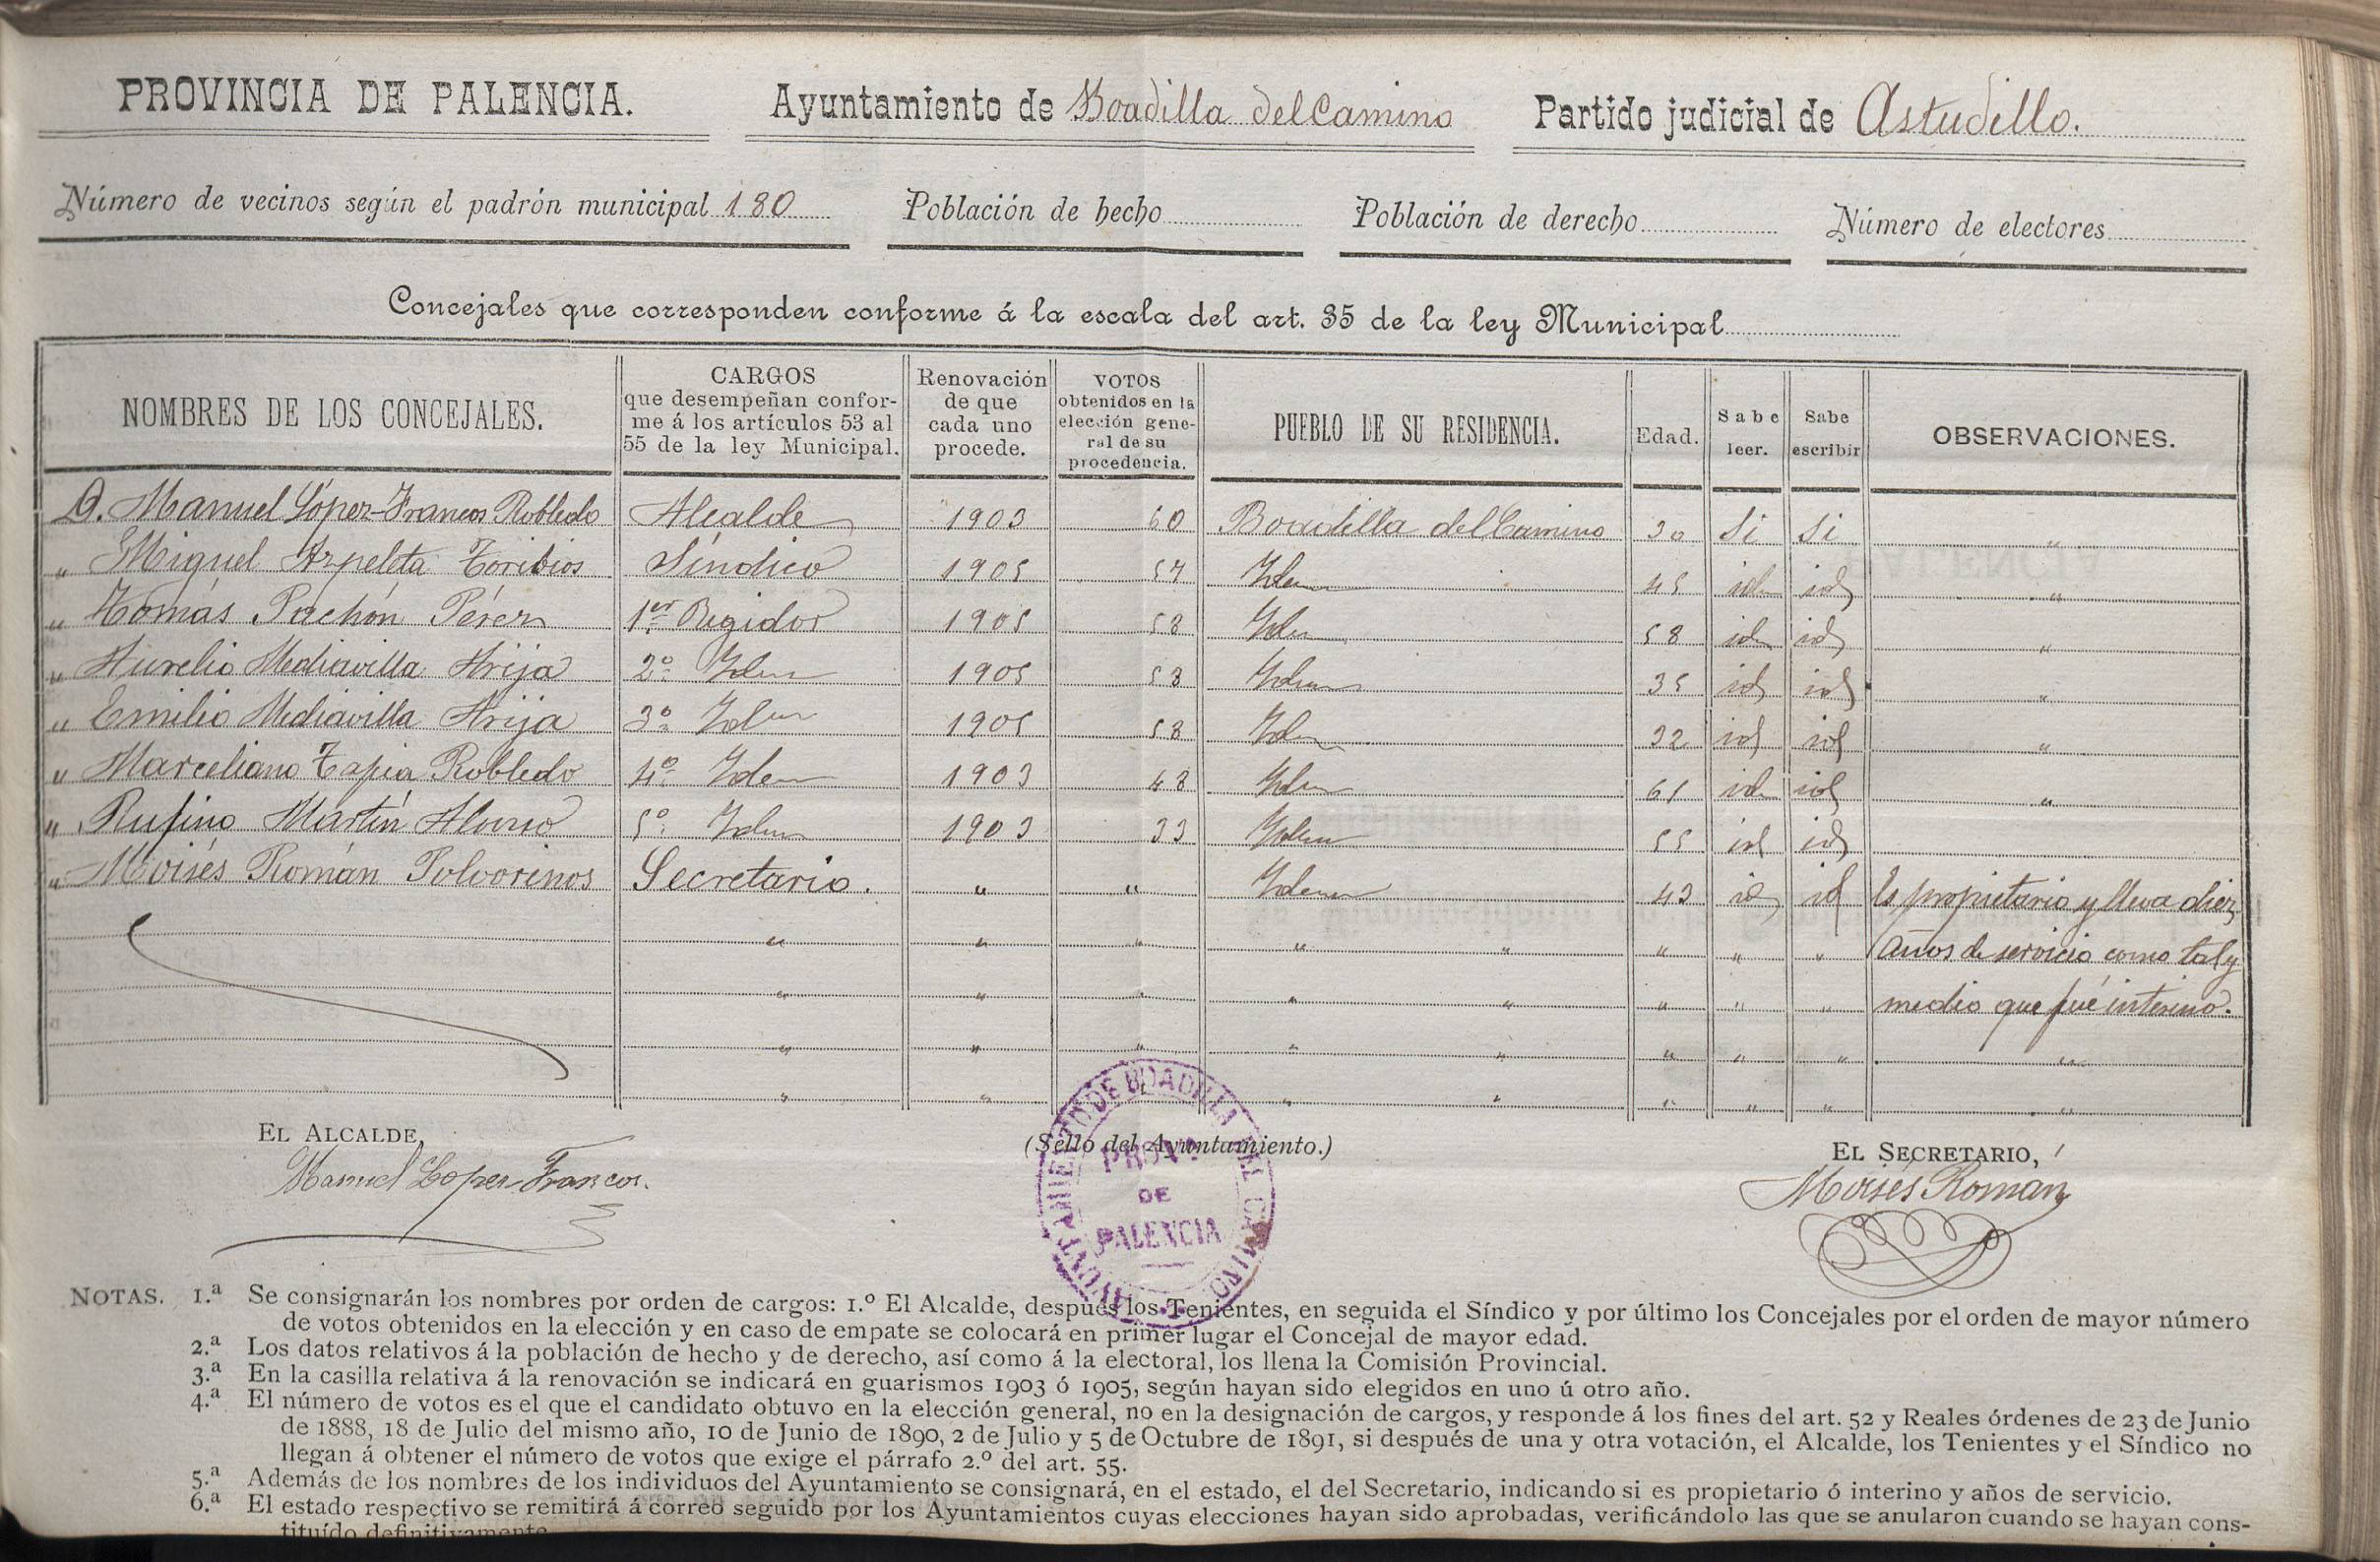 PROVINCIA DE PALENCIA. Ayuntamiento de Boadilla del Camino Partido judicial de Astudillo.
Número de vecinos según el padrón municipal 180 Población de hecho Población de derecho Número de electores
Concejales que corresponden conforme á la escala del art. 35 de la ley Municipal
NOMBRES DE LOS CONCEJALES.
CARGOS
que desempeñan confor-
me á los artículos 53 al
55 de la ley Municipal.
Renovación
de que
cada uno
procede.
VOTOS
obtenidos en la
elección gene-
ral de su
procedencia.
PUEBLO DE SU RESIDENCIA.
Edad.
Sabe
leer.
Sabe
escribir
OBSERVACIONES.
D. Manuel López-Francos Robledo Alcalde 1903 60 Boadilla del Camino 30 Si Si "
" Miguel Azpeleta Toribios Síndico 1905 57 Idem 45 idm id "
" Tomás Pachón Pérez 1er Regidor 1905 58 Idem 58 idm id "
" Aurelio Mediavilla Arija 2º Idem 1905 58 Idem 35 id id "
" Emilio Mediavilla Arija 3º Idem 1905 58 Idem 32 id id "
" Marceliano Tapia Robledo 4º Idem 1903 48 Idem 61 idm id "
" Rufino Martín Alonso 5º Idem 1903 33 Idem 55 id id
" Moisés Román Polvorinos Secretario. " " Idem 43 id id Es propietario y lleva diez
" " " " " " " " años de servicio como tal y
" " " " " " " " medio que fué interino.
" " " " " " " " "
" " " " " " " " "
EL ALCALDE,
Manuel Lopez-Francos.
(Sello del Ayuntamiento.)
AYUNTAMIENTO DE BOADILLA DEL CAMINO
PROVª
DE
PALENCIA
EL SECRETARIO,
Moisés Román
NOTAS. 1.ª Se consignarán los nombres por orden de cargos: 1.º El Alcalde, después los Tenientes, en seguida el Síndico y por último los Concejales por el orden de mayor número
de votos obtenidos en la elección y en caso de empate se colocará en primer lugar el Concejal de mayor edad.
2.ª Los datos relativos á la población de hecho y de derecho, así como á la electoral, los llena la Comisión Provincial.
3.ª En la casilla relativa á la renovación se indicará en guarismos 1903 ó 1905, según hayan sido elegidos en uno ú otro año.
4.ª El número de votos es el que el candidato obtuvo en la elección general, no en la designación de cargos, y responde á los fines del art. 52 y Reales órdenes de 23 de Junio
de 1888, 18 de Julio del mismo año, 10 de Junio de 1890, 2 de Julio y 5 de Octubre de 1891, si después de una y otra votación, el Alcalde, los Tenientes y el Síndico no
llegan á obtener el número de votos que exige el párrafo 2.º del art. 55.
5.ª Además de los nombres de los individuos del Ayuntamiento se consignará, en el estado, el del Secretario, indicando si es propietario ó interino y años de servicio.
6.ª El estado respectivo se remitirá á correo seguido por los Ayuntamientos cuyas elecciones hayan sido aprobadas, verificándolo las que se anularon cuando se hayan cons-
tituído definitivamente